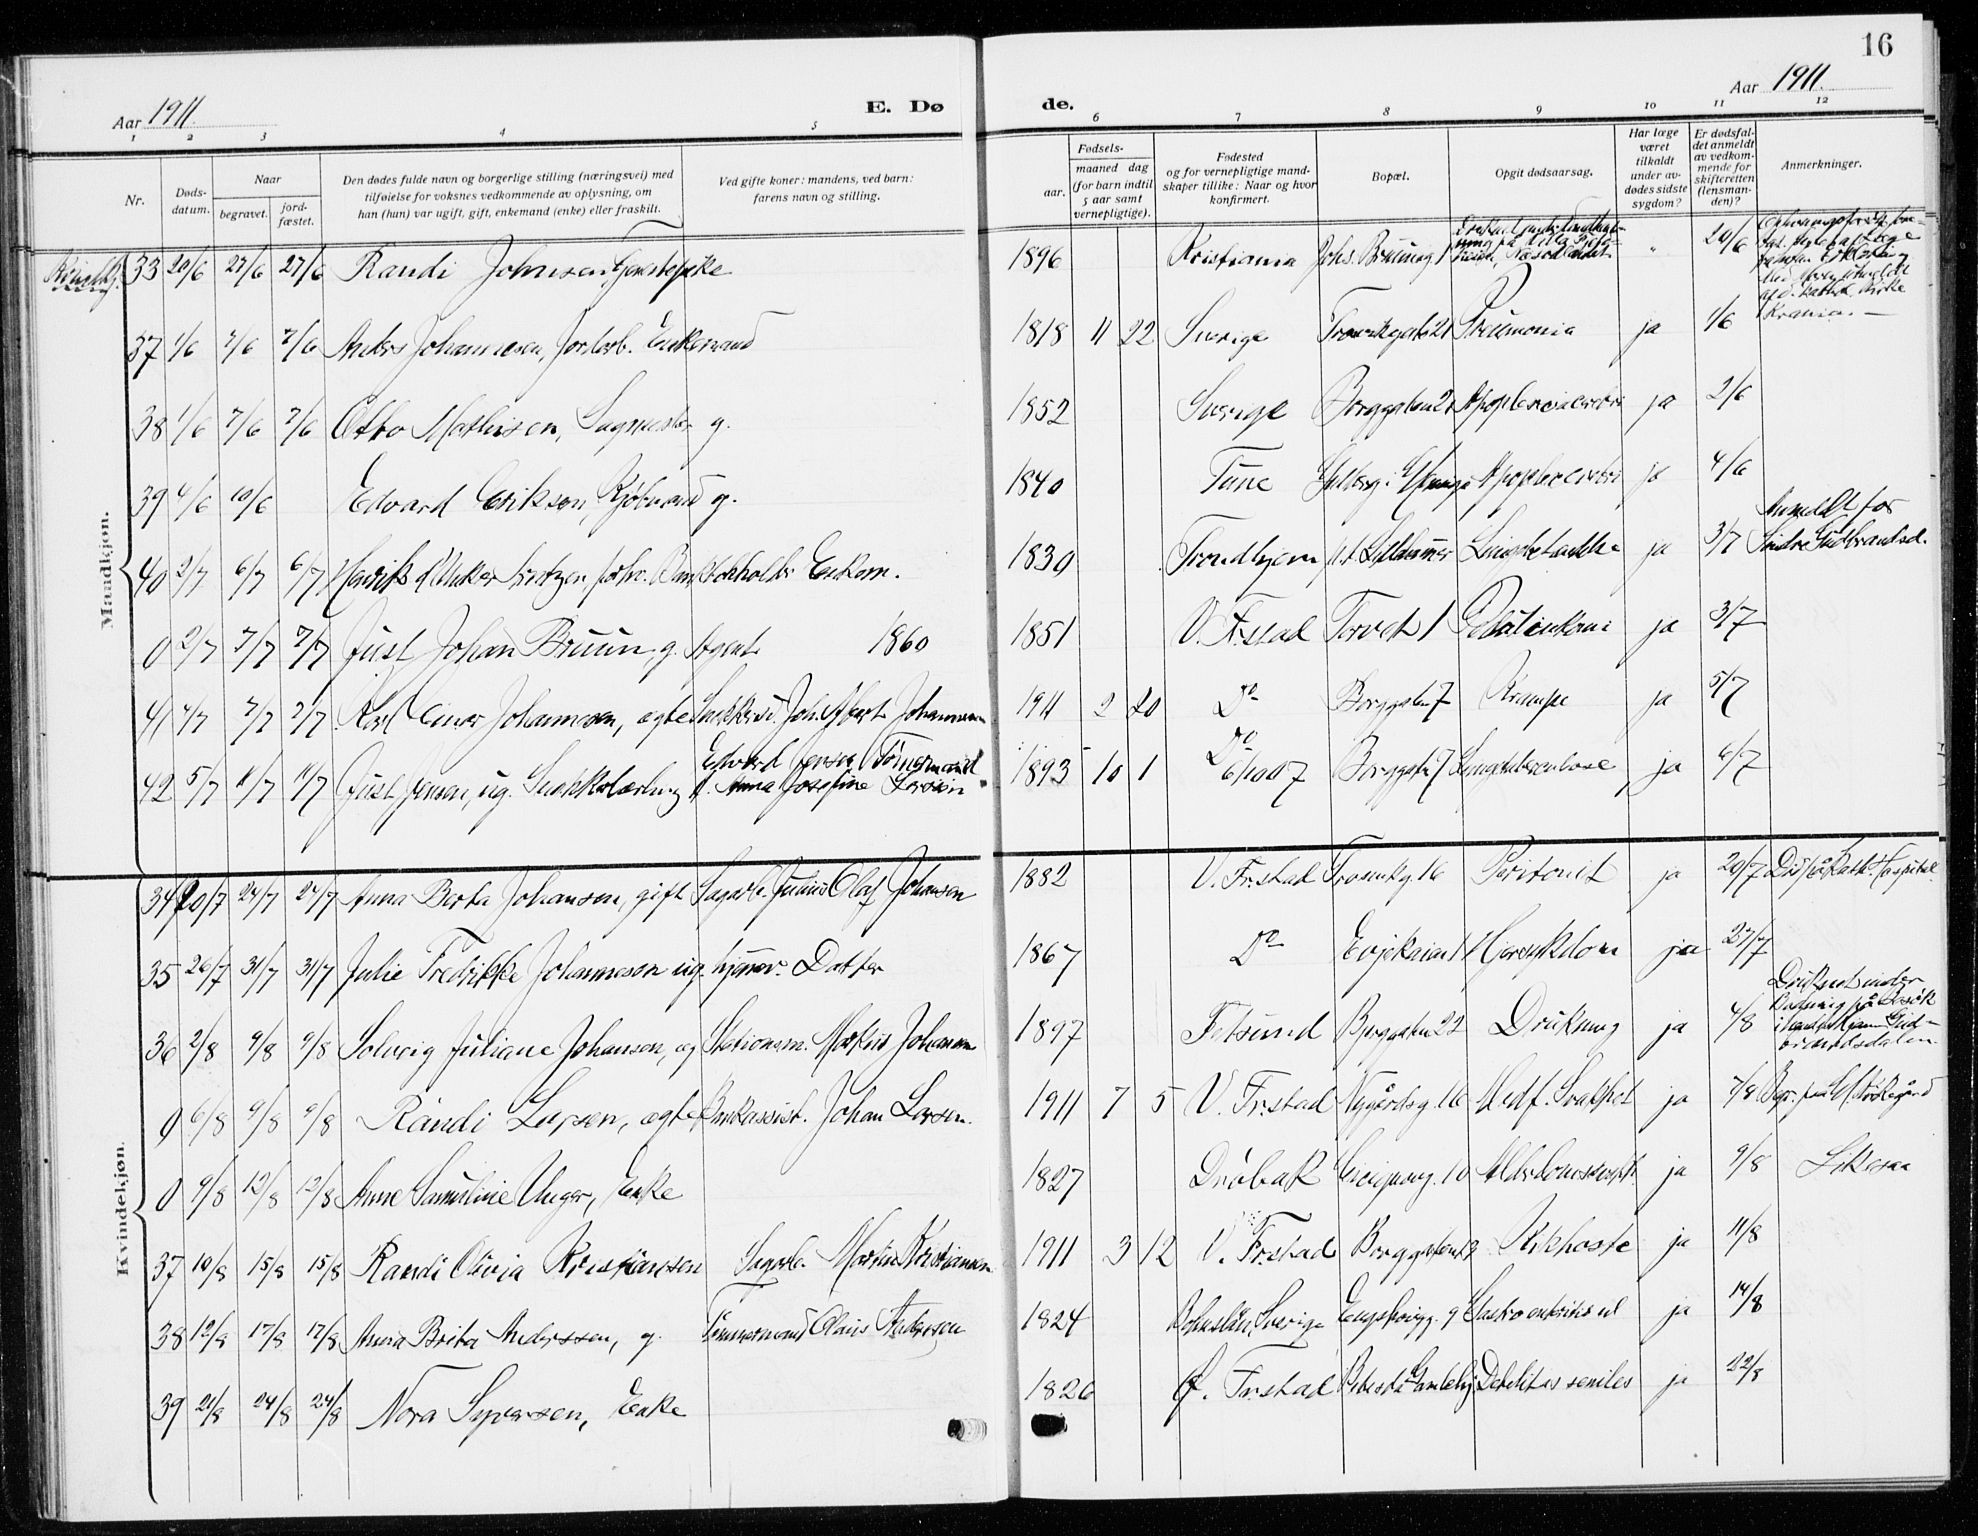 16
Aar 1911.
E. Dø
de.
Aar 1911.
1 2 3 4 5 6 7 8 9 10 11 12
Nr.
Døds-
datum.
Naar
begravet.
jord-
fæstet.
Den dødes fulde navn og borgerlige stilling (næringsvei) med
tilføielse for voksnes vedkommende av oplysning, om
han (hun) var ugift, gift, enkemand (enke) eller fraskilt.
Ved gifte koner: mandens, ved barn:
farens navn og stilling.
Fødsels-
aar.
maaned dag
(for barn indtil
5 aar samt
vernepligtige).
Fødested
og for vernepligtige mand-
skaper tillike: Naar og hvor
konfirmert.
Bopæl.
Opgit dødsaarsag.
Har læge
været
tilkaldt
under av-
dødes sidste
sygdom?
Er dødsfal-
det anmeldt
av vedkom-
mende for
skifteretten
(lensman-
den)?
Anmerkninger.
33 20/6 27/6 27/6 Randi Johnsen, 1896 Kristiania Johs. Bruunsg. 1 " 20/6
Mandkjøn.
37 1/6 7/6 7/6 Anders Johannesen, Jordarb. Enkemand 1818 11 22 Sverige Trosvikgaten 21 Pneumonia ja 1/6
38 1/6 7/6 7/6 Otto Mathisen, Sagmester g. 1852 Sverige Borggaten 21 Apoplexia cerebri ja 2/6
39 4/6 10/6 Edvard Eriksen, Kjøbmand g. 1840 Tune Apoplex cerebri ja 4/6
40 2/7 6/7 6/7 Henrik Anker forhv. Enkem. 1830 Trondhjem Lillehammer Lungebetændelse ja 3/7 Anmeldt for Søndre Gudbrandsd.
0 2/7 7/7 7/7 Just Johan Bruun g. Agent 1860 1851 V. Fr.stad Torvet 1 ja 3/7
41 4/7 7/7 7/7 Karl Einar Johannesen, ægte Snekkersv. Joh. Albert Johannesen 1911 2 20 Do Borggaten 7 Krampe ja 5/7
42 5/7 11/7 11/7 Just Jensen, ug. Snekkerlærling Edvard Jensen Tømermand
f. Anna Josefine Larsen 1893 10 1 Do
6/10 07 Borggaten 7 Lungetuberculose ja 6/7
Kvindekjøn.
34 20/7 24/7 24/7 Anna Berta Johansen, gift Sagarb. Julius Olaf Johansen 1882 V. Fr.stad Trosvikg. 16 Peritonit ja 20/7 Død på Kath. Hospital
35 26/7 31/7 31/7 Julie Fredrikke Johannesen ug. hjemv. Datter 1867 Do Hjersykdom ja 27/7
36 2/8 9/8 9/8 Solveig Juliane Johansen, æg Stationsm. Markus Johansen 1897 Fetsund Borggaten 22 Drukning ja 4/8 Druknet under
Badning på besøk
Gud-
brandsdalen
0 6/8 9/8 9/8 Randi Larsen, ægte Bankassist. Johan Larsen. 1911 7 5 V. Fr.stad Nygårdsg. 16 Medf. Svakhet ja 7/8
0 9/8 12/8 12/8 Anne Samuline Unger, Enke 1827 Drøbak ja 9/8
37 10/8 15/8 15/8 Randi Olivia Kristiansen Sagarb. Martin Kristiansen 1911 3 12 V. Fr.stad Kikhoste ja 11/8
38 12/8 17/8 17/8 Anna Brita Anderssen, g. Tømmermand Olaus Anderssen 1824 Bohuslän, Sverige ja 14/8
39 21/8 24/8 24/8 Nora Syversen, Enke 1820 Ø. Fr.stad Debilitas seniles ja 22/8